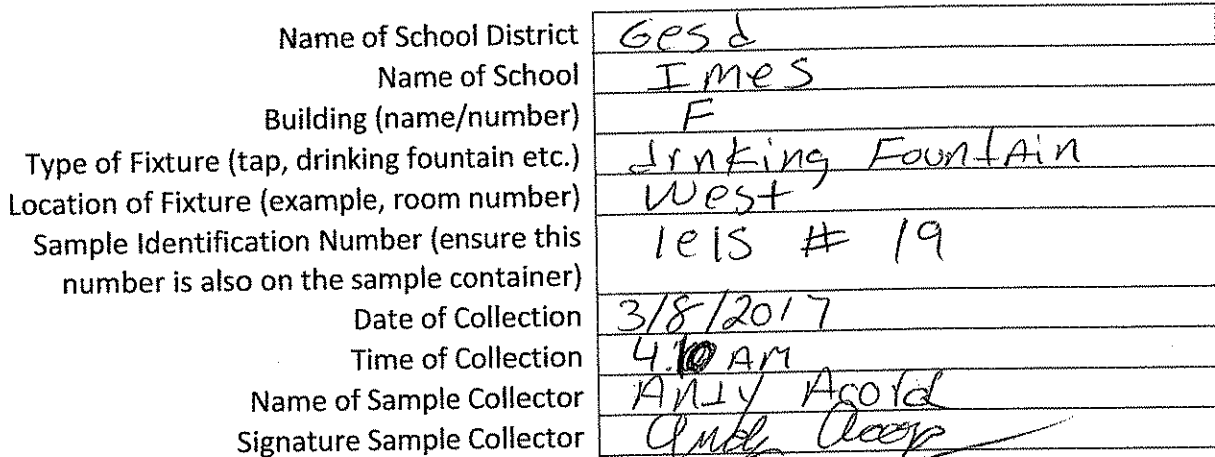 Name of School District Gesd
Name of School Imes
Building (name/number) F
Type of Fixture (tap, drinking fountain etc.) drnking Fountain
Location of Fixture (example, room number) West
Sample Identification Number (ensure this number is also on the sample container) leIS # 19
Date of Collection 3/8/2017
Time of Collection 4:10 AM
Name of Sample Collector Andy Acord
Signature Sample Collector